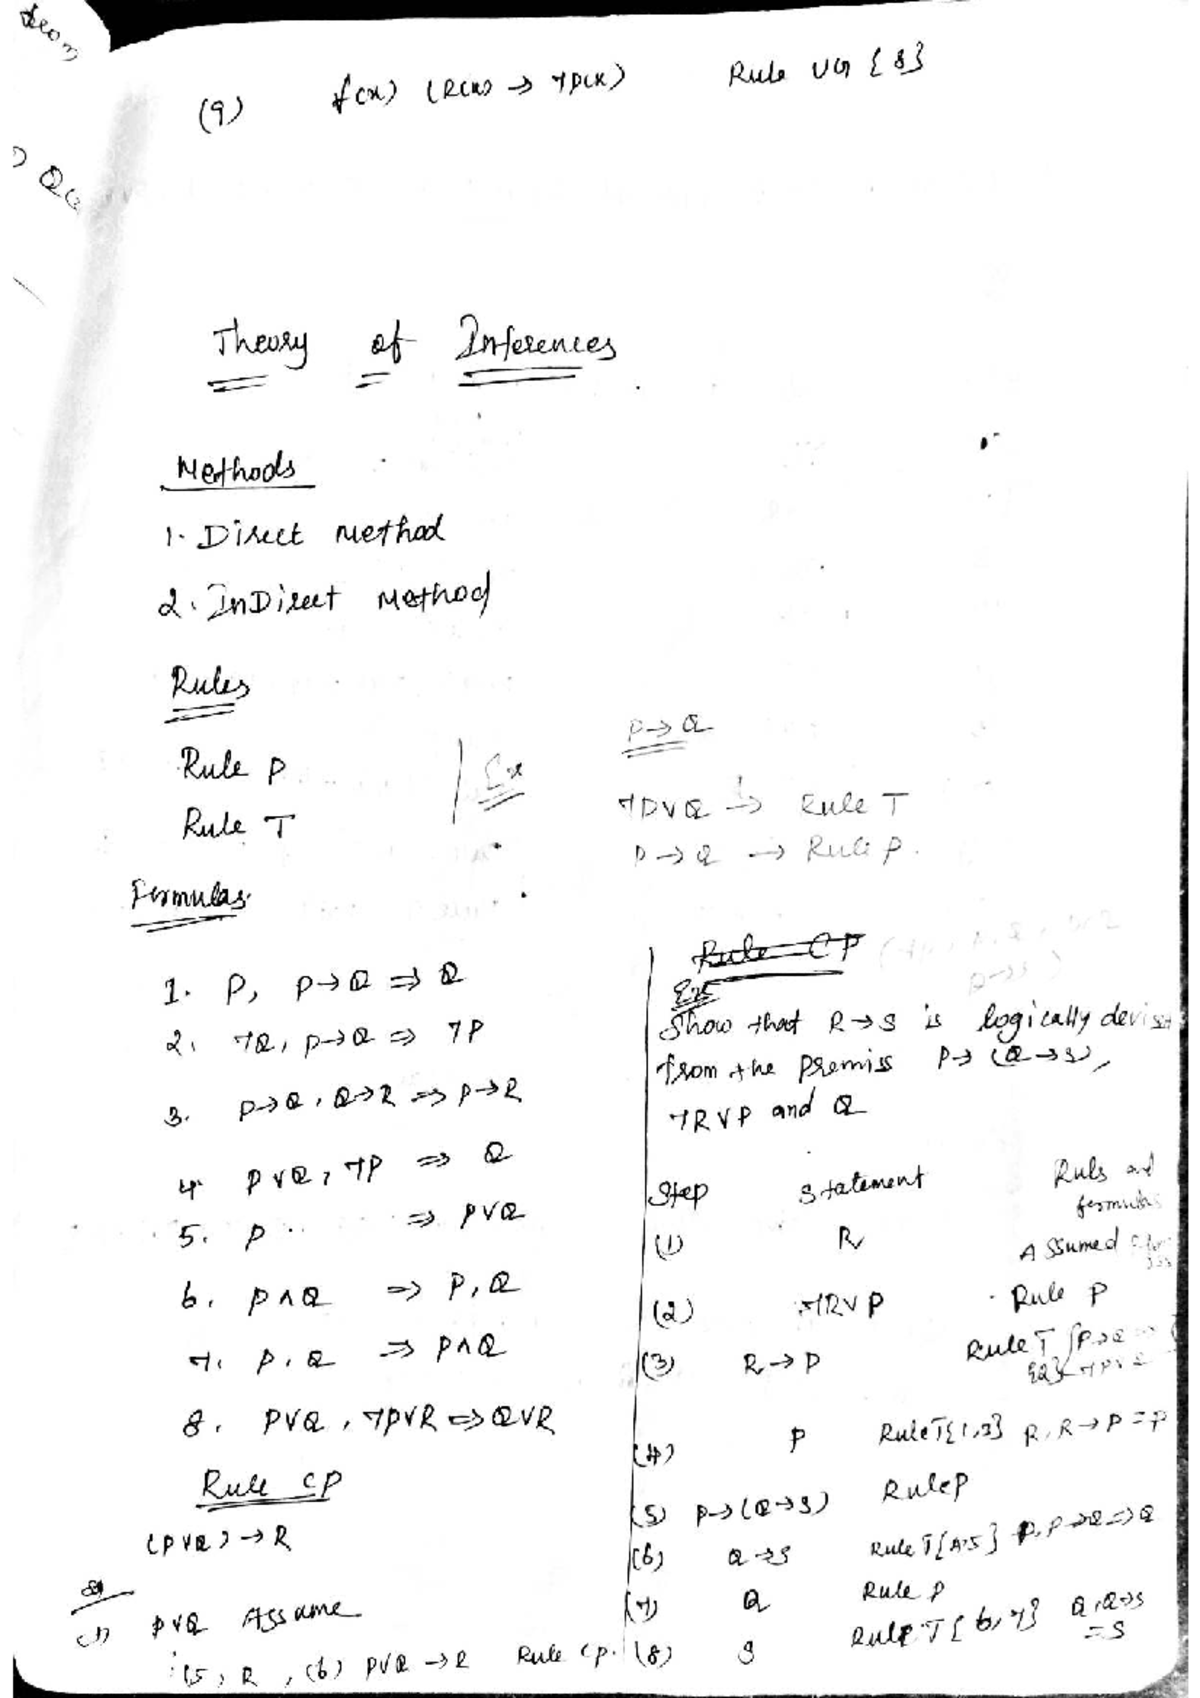 (9) ∀(x) (R(x) → ¬P(x) Rule UG {8}
Theory of Inferences
Methods
1. Direct Method
2. InDirect Method
Rules
Rule P
Rule T
Ex
P→Q
¬P∨Q → Rule T
P→Q → Rule P.
Formulas
1. P, P→Q ⇒ Q
2. ¬Q, P→Q ⇒ ¬P
3. P→Q, Q→R ⇒ P→R
4. P∨Q, ¬P ⇒ Q
5. P ⇒ P∨Q
6. P∧Q ⇒ P, Q
7. P, Q ⇒ P∧Q
8. P∨Q, ¬P∨R ⇒ Q∨R
Rule CP
(P∨Q) → R
(1) P∨Q Assume
(5) R, (6) P∨Q → R Rule CP.
Rule CP
Ex
Show that R→S is logically
from the premiss P→(Q→S),
¬R∨P and Q
Step Statement Ruls and
formulas
(1) R Assumed
(2) ¬R∨P Rule P
(3) R→P Rule T {P→Q ⇒
{2} ¬P∨Q
(4) P Rule T{1,3} R, R→P = P
(5) P→(Q→S) Rule P
(6) Q→S Rule T{4,5} P, P→Q ⇒ Q
(7) Q Rule P
(8) S Rule T{6,7} Q, Q→S
= S